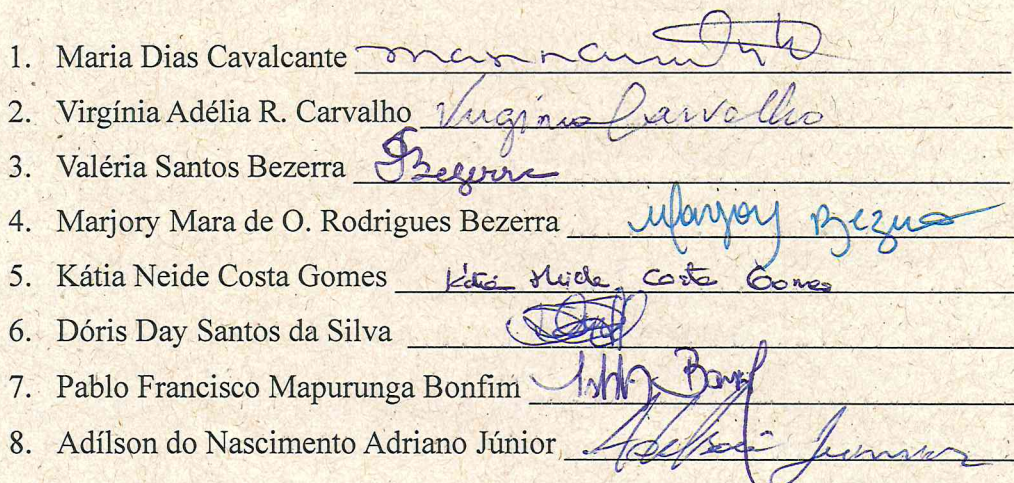 1. Maria Dias Cavalcante
2. Virgínia Adélia R. Carvalho Virgínia Carvalho
3. Valéria Santos Bezerra Bezerra
4. Marjory Mara de O. Rodrigues Bezerra Marjory Bezerra
5. Kátia Neide Costa Gomes Kátia Neide Costa Gomes
6. Dóris Day Santos da Silva
7. Pablo Francisco Mapurunga Bonfim
8. Adílson do Nascimento Adriano Júnior